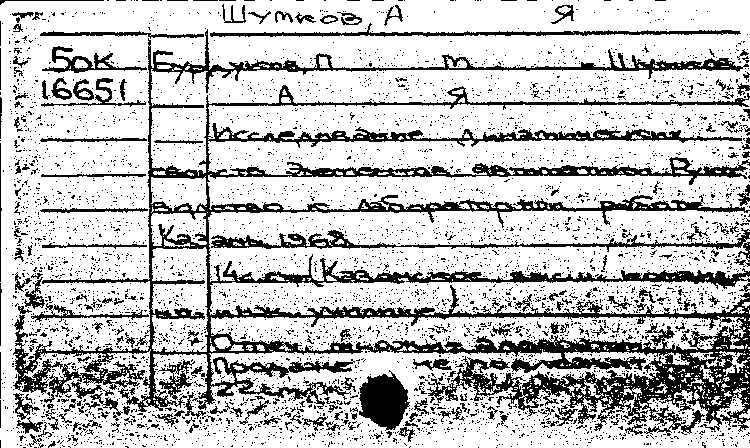 Шутков, А Я
50к Бурдуков, П М - Шутков,
16651 А Я
Исследование динамических
свойств элементов автоматики. Руко-
водство к лабораторной работе
Казань, 1968
14 с. (Казанское высш. команд-
но-инж. училище)
Отпеч. множит. аппаратом
Продаже не подлежит
22 см